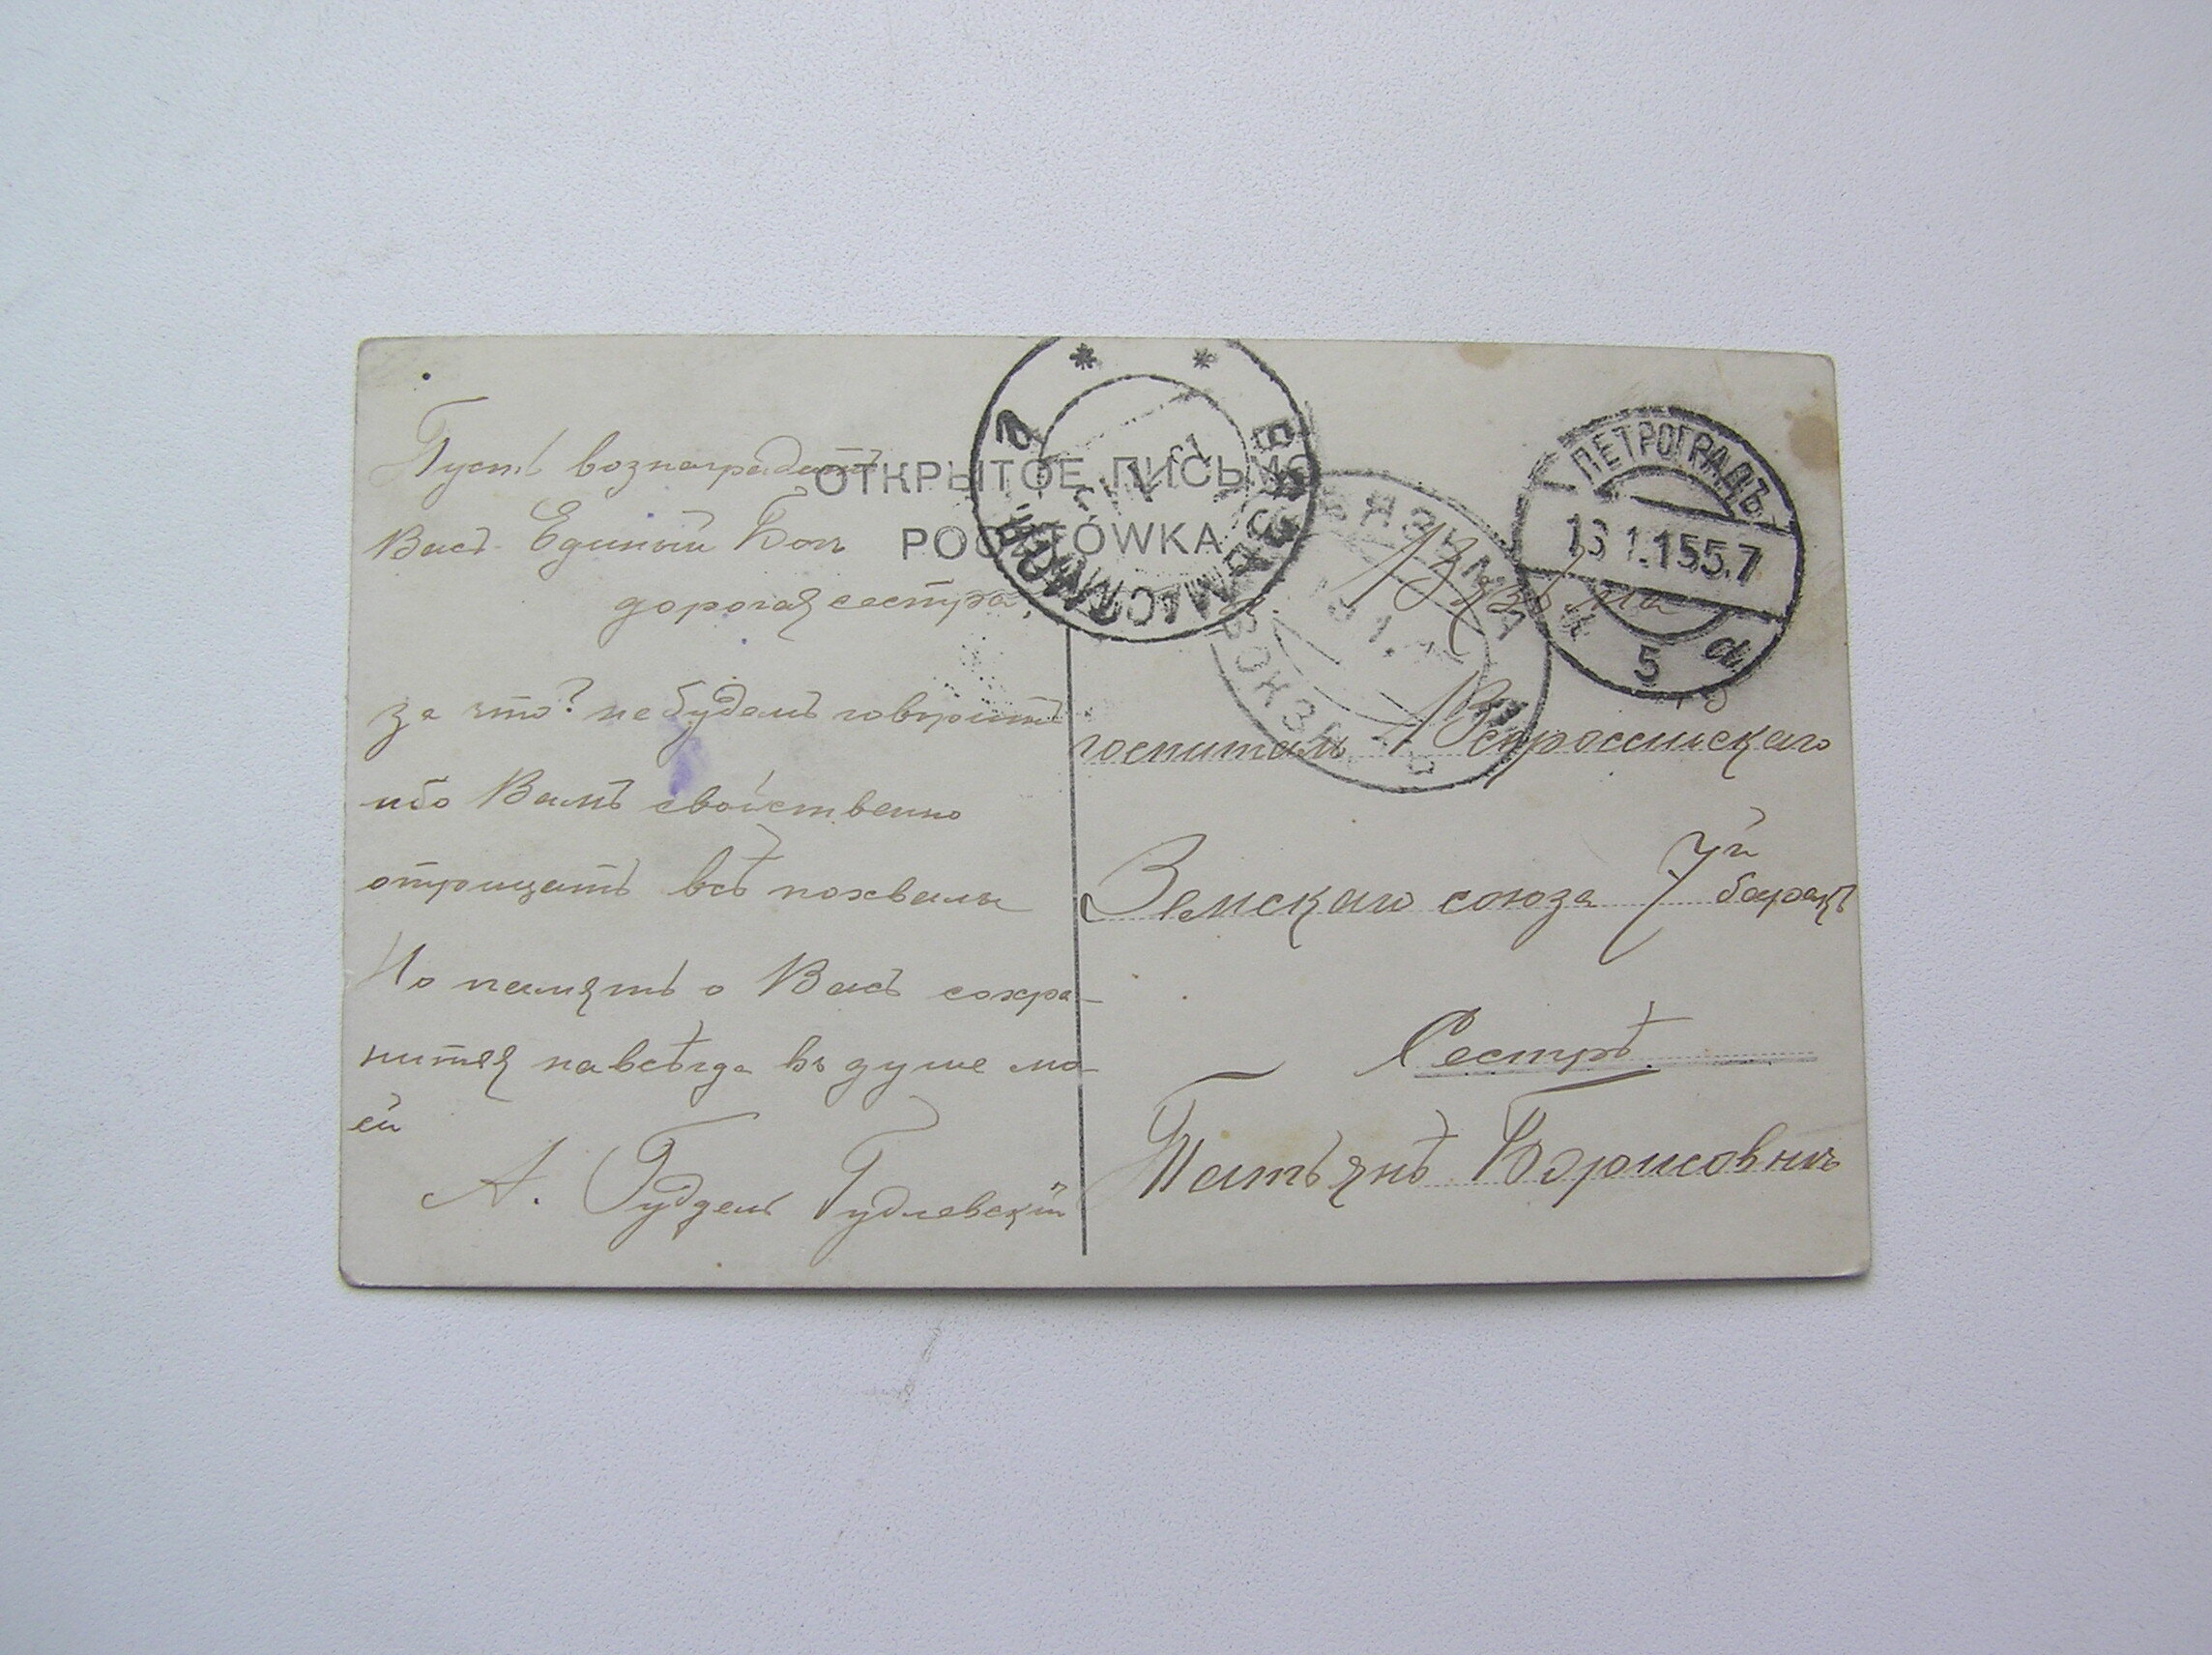 ОТКРЫТОЕ ПИСЬМО
POCZTÓWKA
Пусть вознаградитъ
Васъ Единый Богъ
дорогая сестра
за что? не будемъ говорить
ибо Вамъ свойственно
отрицать всѣ похвалы
Но память о Васъ сохра-
нится навсѣгда въ душе мо-
ей
А. Гудзенъ Гудлевскій
ВЯЗЬМА СМОЛ.
ВЯЗЬМА
ВОКЗАЛЪ
ПЕТРОГРАДЪ
13 1.15 5.7
5 d
г. Вязьма
госпиталь Всероссійскаго
Земскаго союза 7й баракъ
Сестрѣ
Татьянѣ Борисовнѣ